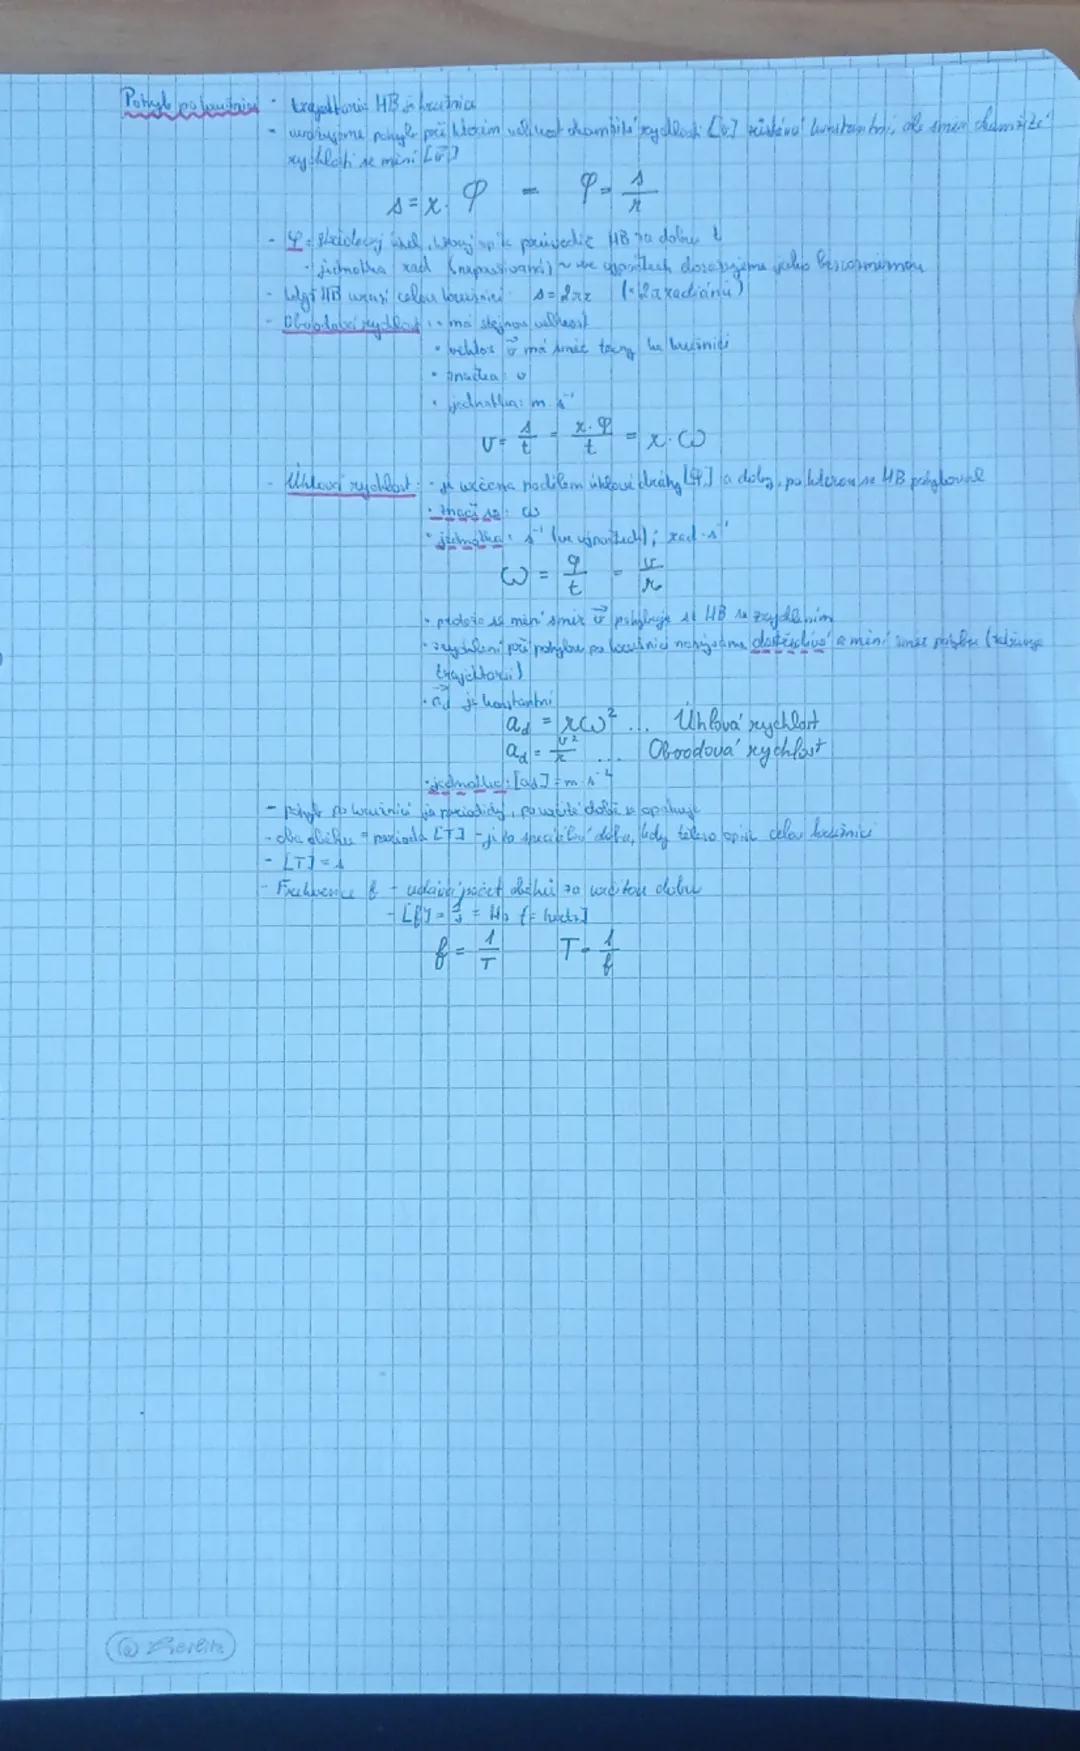 Pohyb po kružnici - trajektorie HB je kružnice
- uvažujeme pohyb při kterém velikost okamžité rychlosti [v] zůstává konstantní, ale směr okamžité
rychlosti se mění [v⃗]
s = r · φ = φ = s/r
- φ = úhel, který opíše průvodič HB za dobu t
- jednotka rad (nepíšeme) ~ ve výpočtech dosazujeme jako bezrozměrnou
- když HB urazí celou kružnici s = 2πr (= 2π radiánů)
- Obvodová rychlost: • má stejnou velikost
• vektor v⃗ má směr tečny ke kružnici
• značka: v
• jednotka: m · s⁻¹
v = s/t = r·φ/t = r·ω
- Úhlová rychlost: - je určena podílem úhlové dráhy [φ] a doby, po kterou se HB pohyboval
• značí se: ω
• jednotka: s⁻¹ (ve výpočtech); rad·s⁻¹
ω = φ/t = v/r
• protože se mění směr v⃗ pohybuje se HB se zrychlením
• zrychlení při pohybu po kružnici nazýváme dostředivé a mění směr pohybu (
trajektorii)
• a⃗d je konstantní
ad = rω² ... Úhlová rychlost
ad = v²/r ... Obvodová rychlost
• jednotka: [ad] = m·s⁻²
- pohyb po kružnici je periodický, po určité době se opakuje
- doba oběhu = perioda [T] - je to doba, kdy těleso opíše celou kružnici
- [T] = s
- Frekvence f - udává počet oběhů za určitou dobu
- [f] = 1/s = Hz [= hertz]
f = 1/T T = 1/f